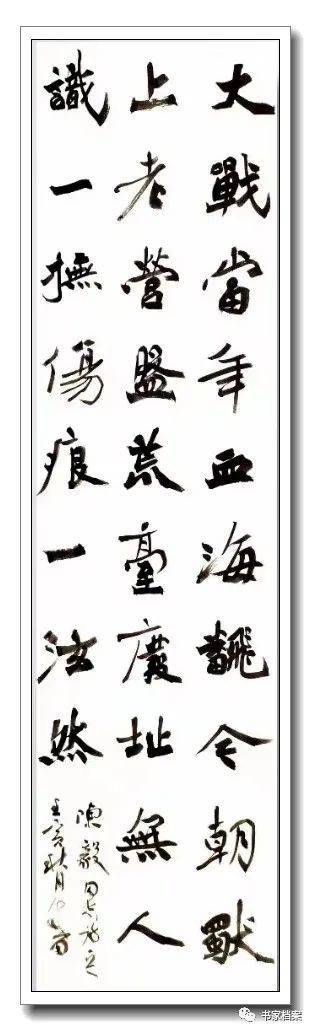 大戰當年血海飜今朝獨
上老營盤荒臺廢址無人
識一撫傷痕一泫然
陳毅同志詩
壬寅秋月
书家档案